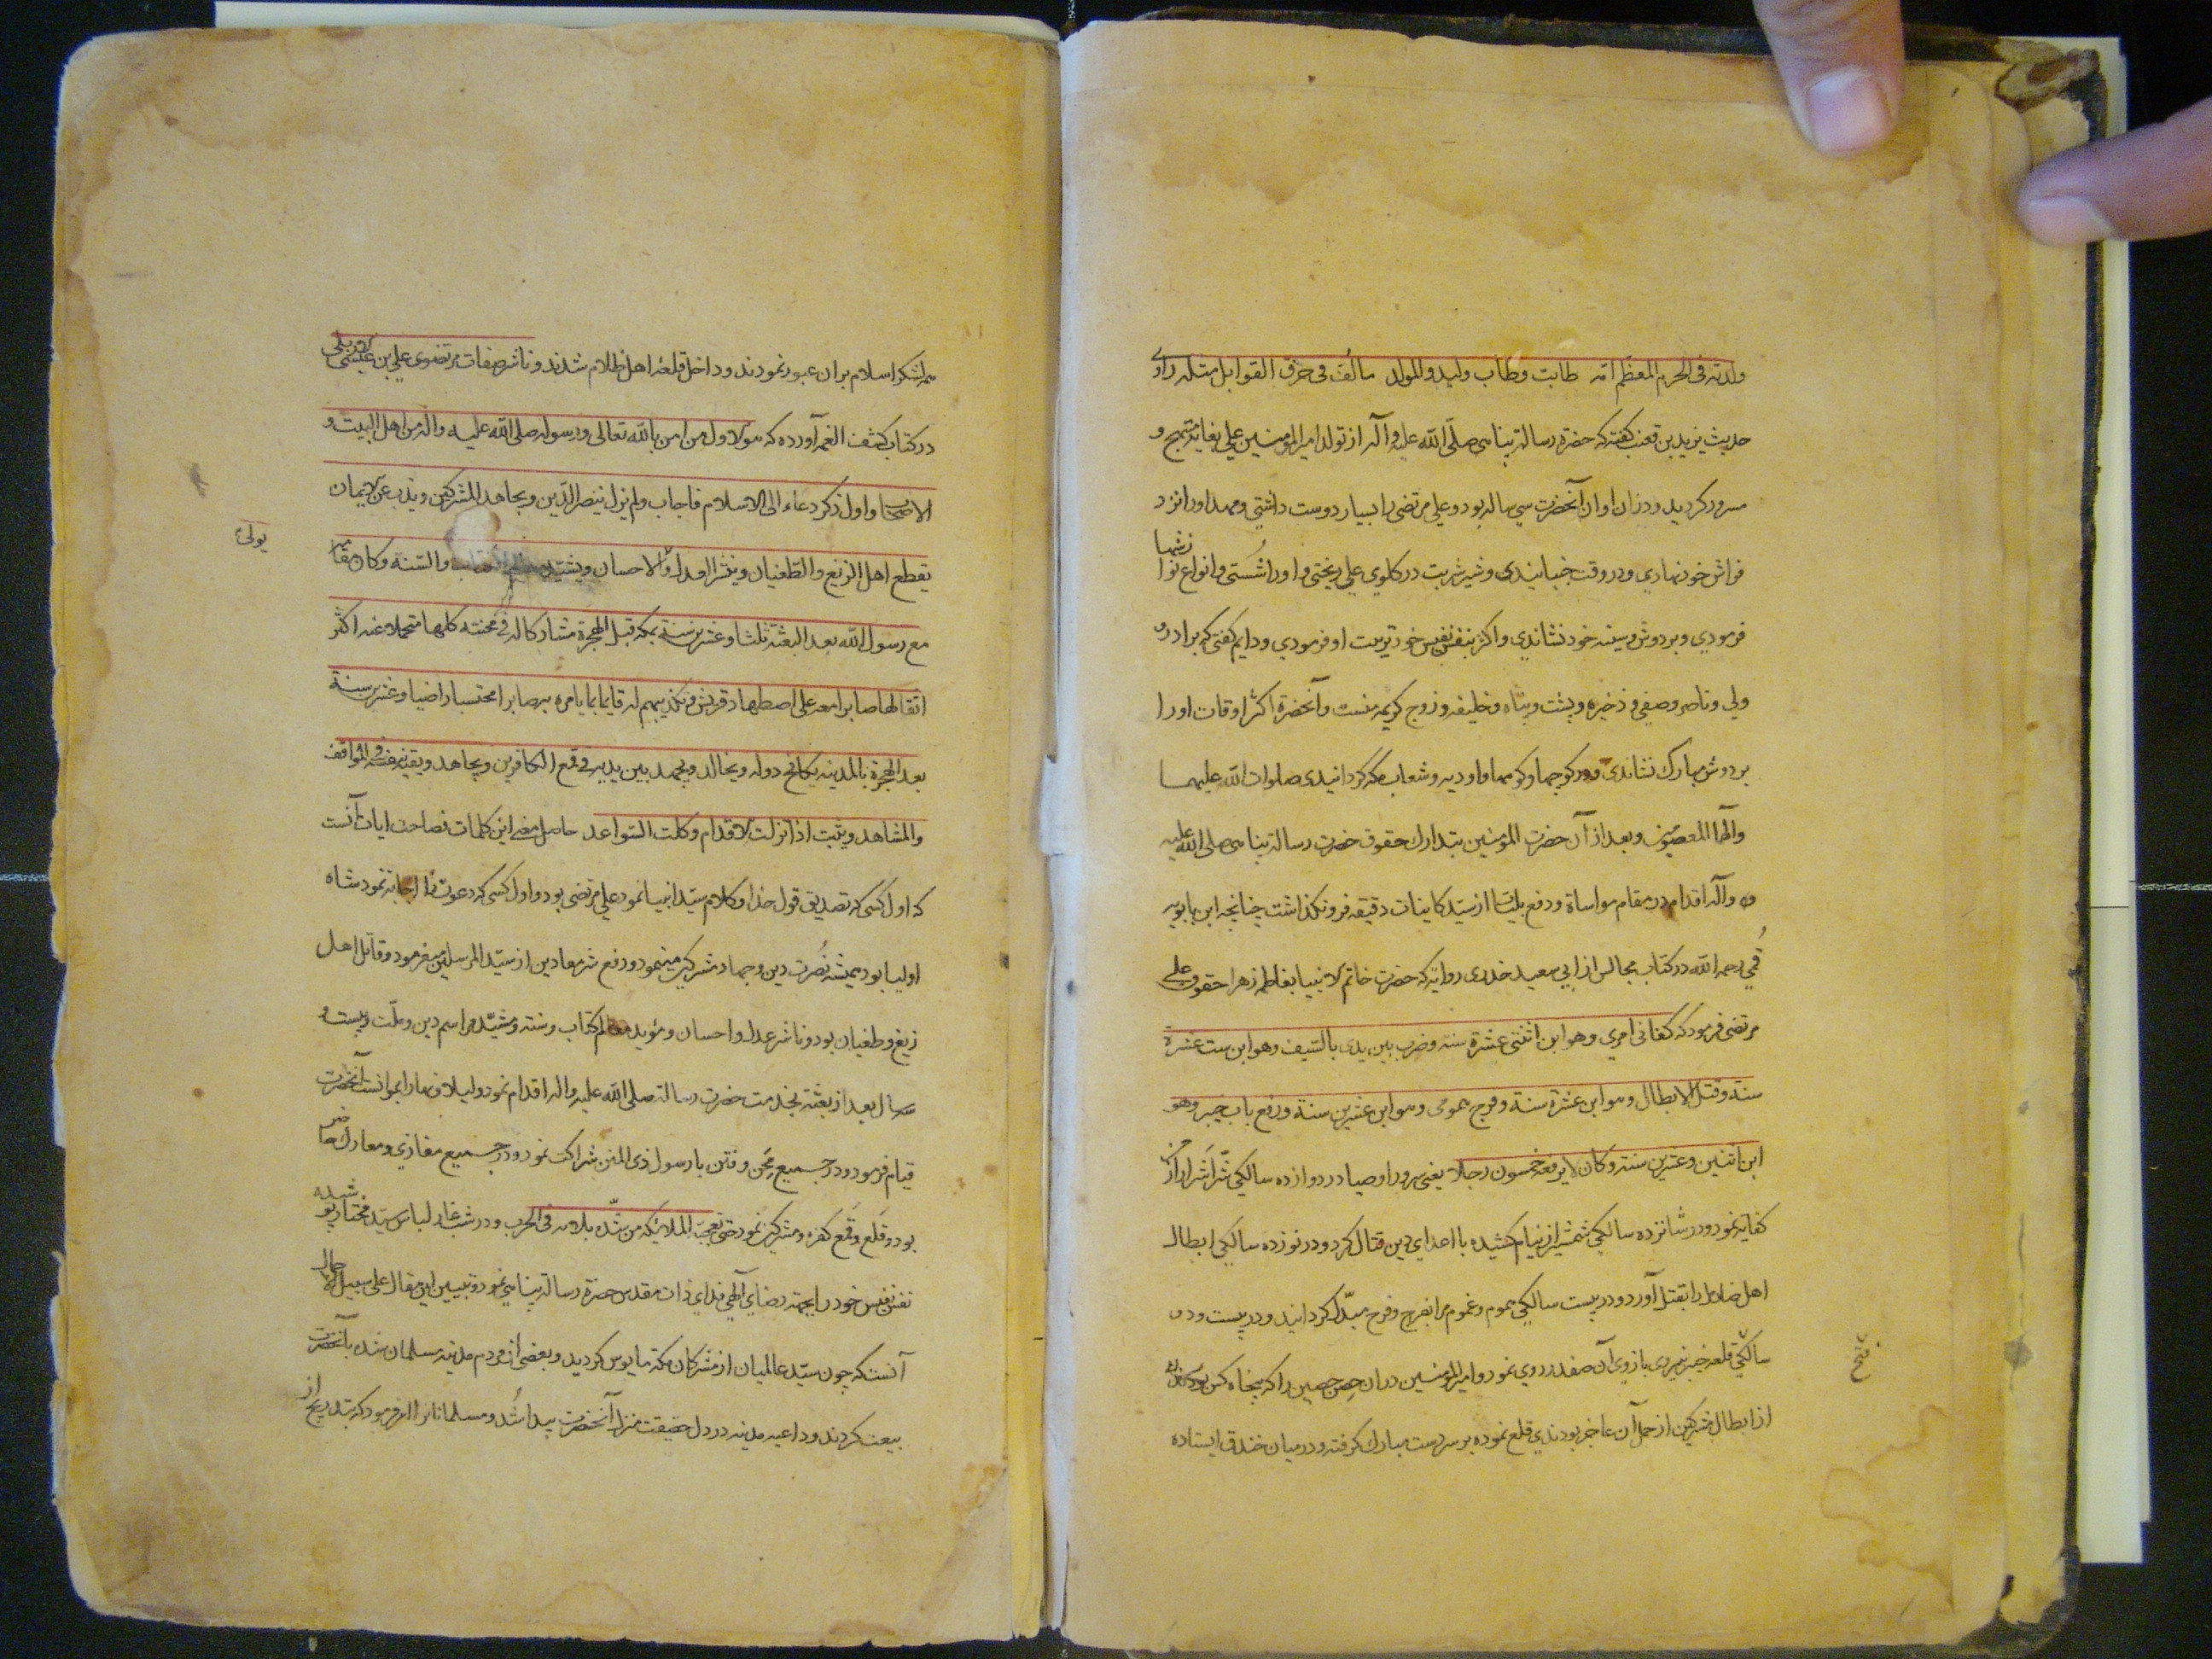 ولدته فی الحرم المعظم امه طابت وطاب ولیدها والمولد ما لف فی خرق القوابل مثله راوی
حدیث یزید بن قعنب گفته که حضرة رسالة پناهی صلی الله علیه وآله از تولد امیر المؤمنین علی بغایة مبتهج و
مسرور کردید ودران اوان آنحضرت سی ساله بود وعلی مرتضی را بسیار دوست داشتی ومهد اورا نزد
فراش خود نهادی ودر وقت جنبانیدی وشیر شربت در کلوی علی ریختی و اورا شستی وانواع نوازشها
فرمودی وبر دوش وسینه خود نشاندی واکثر بنفس نفیس خود تربیت او فرمودی ودایم کفتی که برادر و
ولی وناصر وصفی و ذخیره وپشت وپناه وخلیفه و زوج کریمه منست وآنحضرة اکثر اوقات اورا
بر دوش مبارک نشاندی ودر کوچها وکوهها و اودیه وشعاب مکه کردانیدی صلوات الله علیهما
والهما المعصومین وبعد از آن حضرت المومنین بتدارک حقوق حضرت رسالة پناهی صلی الله علیه
و وآله اقدام در مقام مواساة ودفع بلیات از سید کاینات دقیقه فرو نکذاشت چنانچه ابن بابویه
قمی رحمه الله در کتاب مجالس از ابی سعید خدری روایة که حضرت خاتم الانبیا بفاطمه زهرا حقوق علی
مرتضی فرمود که کفانی امری وهو ابن اثنتی عشرة سنة وضرب بین یدی بالسیف وهو ابن ست عشرة
سنة وقتل الابطال وهو ابن عشرة سنة وفرج همومی وهو ابن عشرین سنة ورفع باب خیبر وهو
ابن اثنین وعشرین سنة وکان لا یرفعه خمسون رجلا یعنی سرور اوصیا در دوازده سالکی شر اشرار از من
کفایة نمود ودر شانزده سالکی شمشیر از نیام کشیده با اعدای دین قتال کرد ودر نوزده سالکی ابطال
اهل ضلال را بقتل آورد ودر بیست سالکی هموم وغموم مرا بفرج وفرح مبدل کردانید ودر بیست ودو
سالکی قلعه خیبر بنیروی بازوی آن صفدر روی نمود وامیر المومنین دران حصن حصین را که پنجاه کس
فتح
از ابطال مشرکین از حمل آن عاجز بودندی قلع نموده بر سر دست مبارک کرفته ودر میان خندق ایستاده
لشکر اسلام بران عبور نمودند و داخل قلعه اهل ظلام شدند و ناشر صفات مرتضوی علی بن عیسی اربلی
در کتاب کشف الغمه آورده که هو الاول من امن بالله تعالی ورسوله صلی الله علیه واله من اهل البیت و
الاصحاب واول ذکر دعاه الی الاسلام فاجاب ولم یزل ینصر الدین ویجاهد المشرکین ویذب عن الایمان
یقطع اهل الزیغ والطغیان وینشر العدل والاحسان ویشید والسنه وکان مقامه
یولی
مع رسول الله بعد البعثة ثلثا وعشرین سنة بمکه قبل الهجرة مشارکا له فی محنته کلها متحملا عنه اکثر
اثقالها صابرا معه علی اضطهاد قریش وتکذیبهم له قایما بما یامره به صابرا محتسبا راضیا وعشر سنة
بعد الهجرة بالمدینه یکافح دونه ویجالد ویجهد بین یدیه فی قمع الکافرین ویجاهد ویقیه بنفسه فی المواقف
والمشاهد ویثبت اذا تزلزلت الاقدام وکلت السواعد حاصل معنی این کلمات فصاحت ایات آنست
که اول کسی که تصدیق قول خدا وکلام سید انبیا نمود علی مرتضی بود واول کسی که دعوت را اجابة نمود شاه
اولیا بود همیشه نصرت دین وجهاد مشرکین مینمود ودفع شر معادین از سید المرسلین میفرمود وقاتل اهل
زیغ وطغیان بود وناشر عدل واحسان ومؤید معالم کتاب وسنة ومشید مراسم دین وملت وبیست و
سه سال بعد از بعثة بخدمت حضرت رسالة صلی الله علیه واله اقدام نمود ولیلا ونهارا بموانست آنحضرت
قیام فرمود ودر جمیع محن وفتن با رسول ذی المنن شراکت نمود ودر جمیع مغازی ومعارک حاضر
بود وقلع وقمع کفره ومشرکین نمود حتی تعجبت الملائکه من شدة بلائه فی الحرب ودر شب غار لباس سید مختار پوشیده
نفس نفیس خود را بجهة رضای آلهی فدای ذات مقدس حضرة رسالة پناهی نمود وتبیین این مقال علی سبیل الاجمال
آنست که چون سید عالمیان از مشرکان مکه مایوس کردید وبعضی از مردم مدینه مسلمان شده بآنحضرت
بیعت کردند وداعیه مدینه در دل حقیقت منزل آنحضرت پیدا شد ومسلمانانرا امر فرمود که بتدریج از